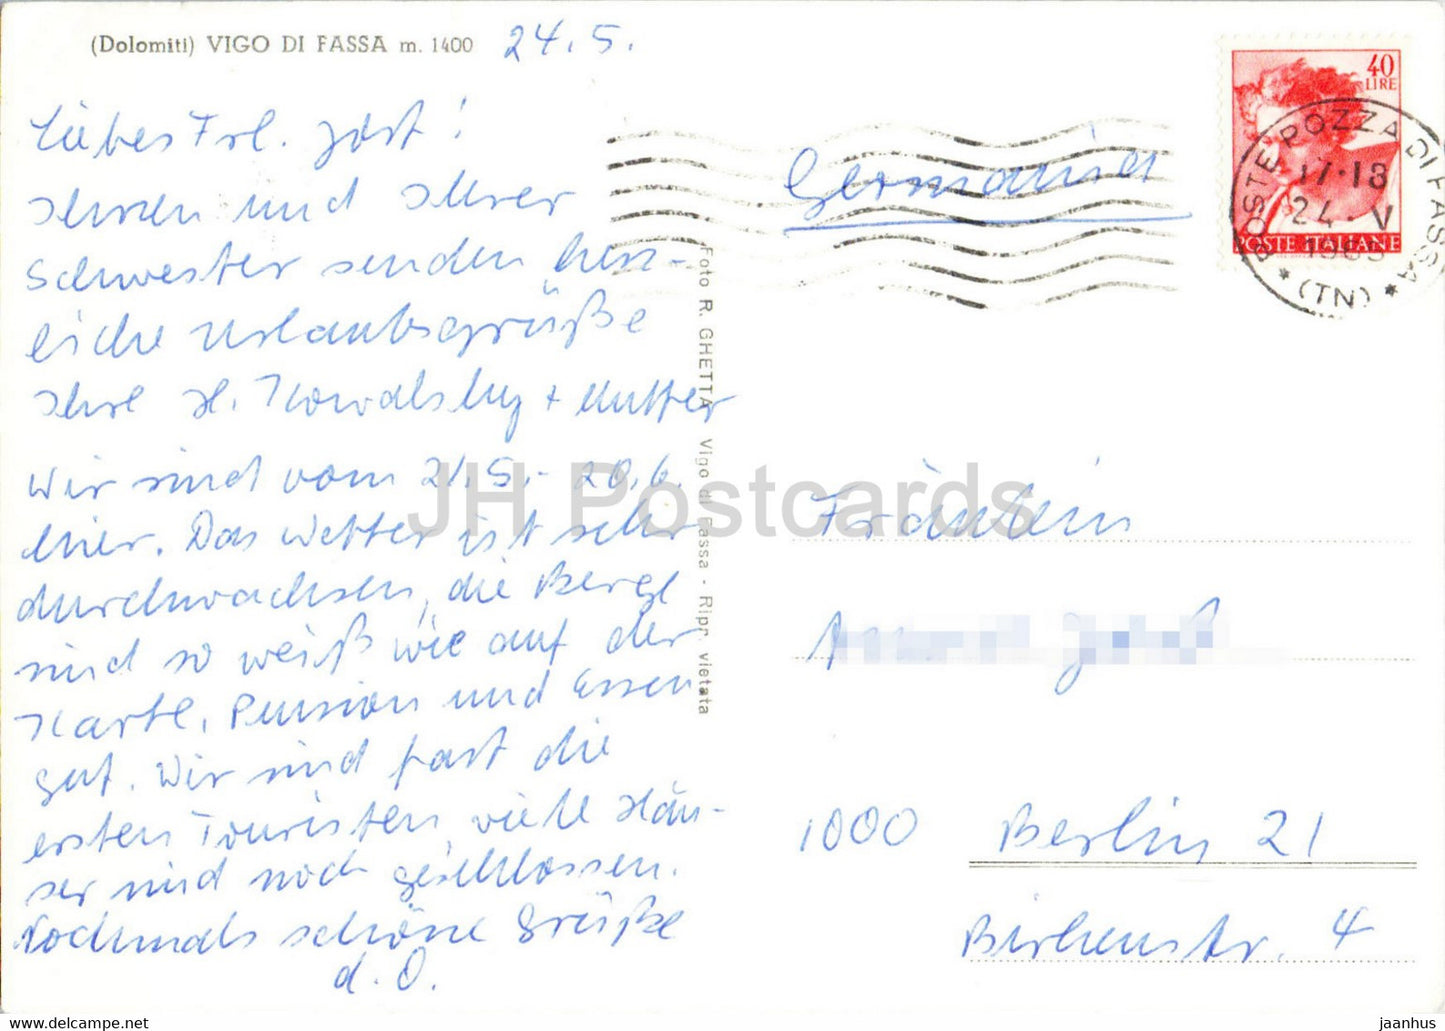 (Dolomiti) VIGO DI FASSA m. 1400
24.5.
Liebes Frl. Jost!
Ihnen und Ihrer
Schwester senden herz-
liche Urlaubsgrüße
Ihre H. Kowalsky + Mutter
Wir sind vom 21.5.- 20.6.
hier. Das Wetter ist sehr
durchwachsen, die Berge
sind so weiß wie auf der
Karte. Pension und Essen
gut. Wir sind fast die
ersten Touristen viele Häu-
ser sind noch geschlossen.
Nochmals schöne Grüße
d. O.
Foto R. GHETTA Vigo di Fassa - Ripr. vietata
Germania
40
LIRE
POSTE ITALIANE
POSTE POZZA DI FASSA
17-18
24. V
* (TN) *
Fräulein
1000 Berlin 21
Birkenstr. 4
JH Postcards
https://www.ebay.com/str/jhpostcards
jaanhus